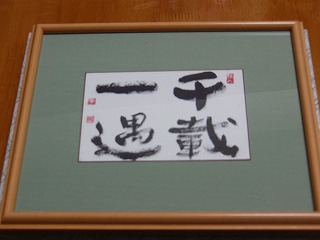 千載
一遇